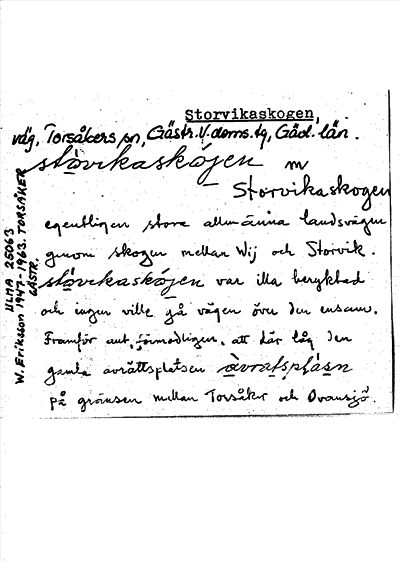 Storvikaskogen,
väg, Torsåkers sn, Gästr. V. doms. tg, Gävl. län.
stòvikaskójen m
Storvikaskogen
egentligen stora allmänna landsvägen
genom skogen mellan Wij och Storvik.
stòvikaskójen var illa beryktad
och ingen ville gå vägen över den ensam.
Framför ant. förmodligen, att där låg den
gamla avrättsplatsen àvratsplásn
på gränsen mellan Torsåker och Ovansjö.
ULMA 25063
W. Eriksson 1947-1963. TORSÅKER
GÄSTR.